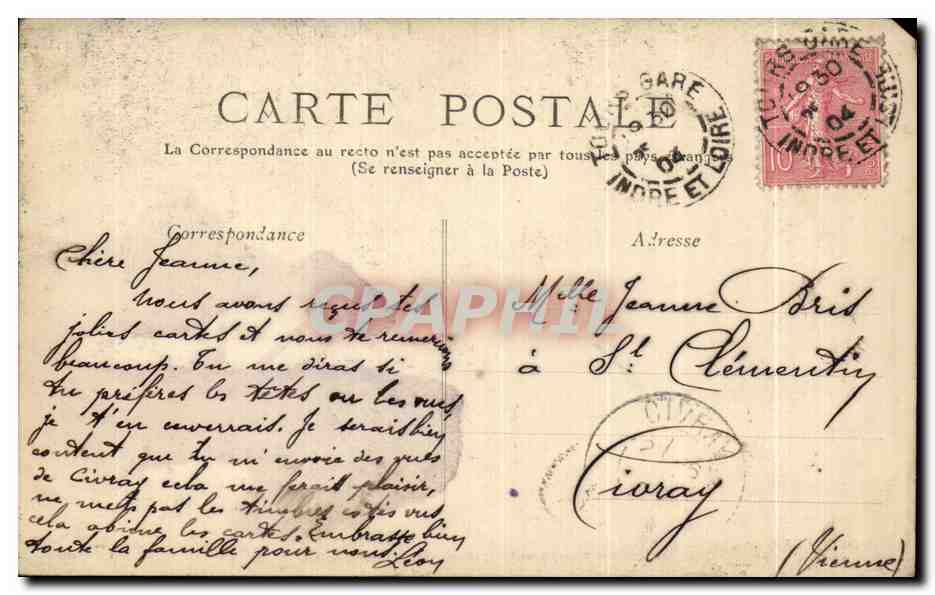 CARTE POSTALE
La Correspondance au recto n'est pas acceptée par tous les pays étrangers
(Se renseigner à la Poste)
TOURS GARE
9 30
04
INDRE ET LOIRE
TOURS GARE
9 30
04
INDRE ET LOIRE
10
Correspondance
Adresse
Chère Jeanne,
Nous avons reçus tes
jolies cartes et nous te remercions
beaucoup. Tu me diras si
tu préfères les têtes ou les vues,
je t'en enverrais. Je serais bien
content que tu m'envoie des vues
de Civray cela me ferait plaisir,
ne mets pas les timbres cotés vus
cela abime les cartes. Embrasse bien
toute la famille pour nous. Léon
Mlle Jeanne Bris
à St Clémentin
CIVRAY
Civray
(Vienne)
CPAPHIL